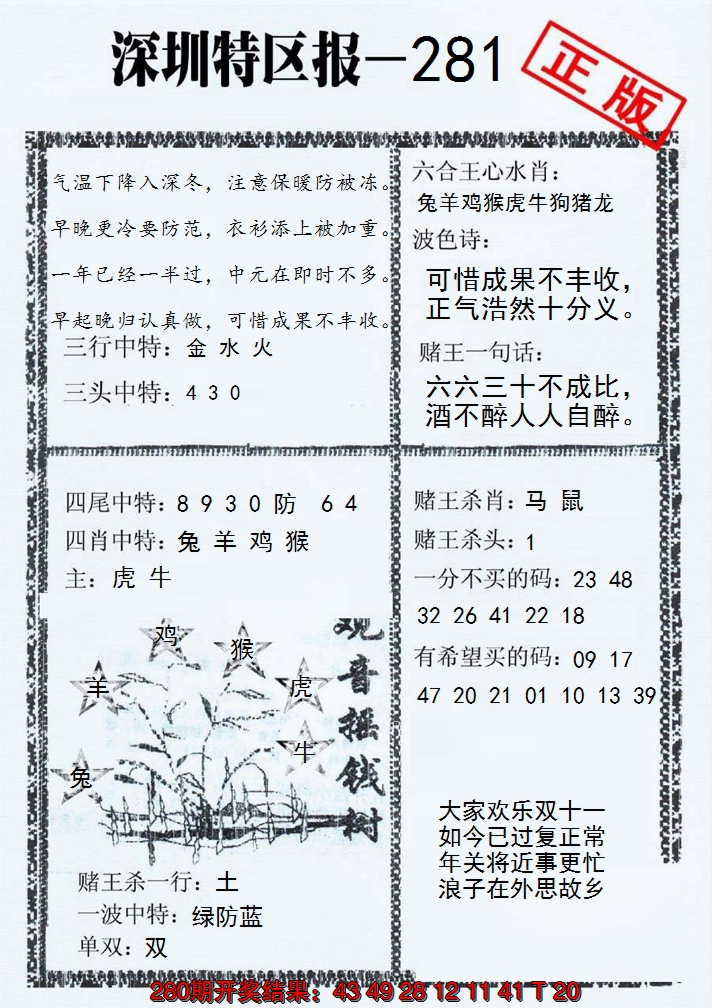 深圳特区报-281
正版
气温下降入深冬，注意保暖防被冻。
早晚更冷要防范，衣衫添上被加重。
一年已经一半过，中元在即时不多。
早起晚归认真做，可惜成果不丰收。
三行中特：金 水 火
三头中特：4 3 0
六合王心水肖：
兔羊鸡猴虎牛狗猪龙
波色诗：
可惜成果不丰收，
正气浩然十分义。
赌王一句话：
六六三十不成比，
酒不醉人人自醉。
四尾中特：8 9 3 0 防 6 4
四肖中特：兔 羊 鸡 猴
主：虎 牛
鸡
猴
羊
虎
牛
兔
观音摇钱树
赌王杀一行：土
一波中特：绿防蓝
单双：双
赌王杀肖：马 鼠
赌王杀头：1
一分不买的码：23 48
32 26 41 22 18
有希望买的码：09 17
47 20 21 01 10 13 39
大家欢乐双十一
如今已过复正常
年关将近事更忙
浪子在外思故乡
280期开奖结果：43 49 28 12 11 41 T 20